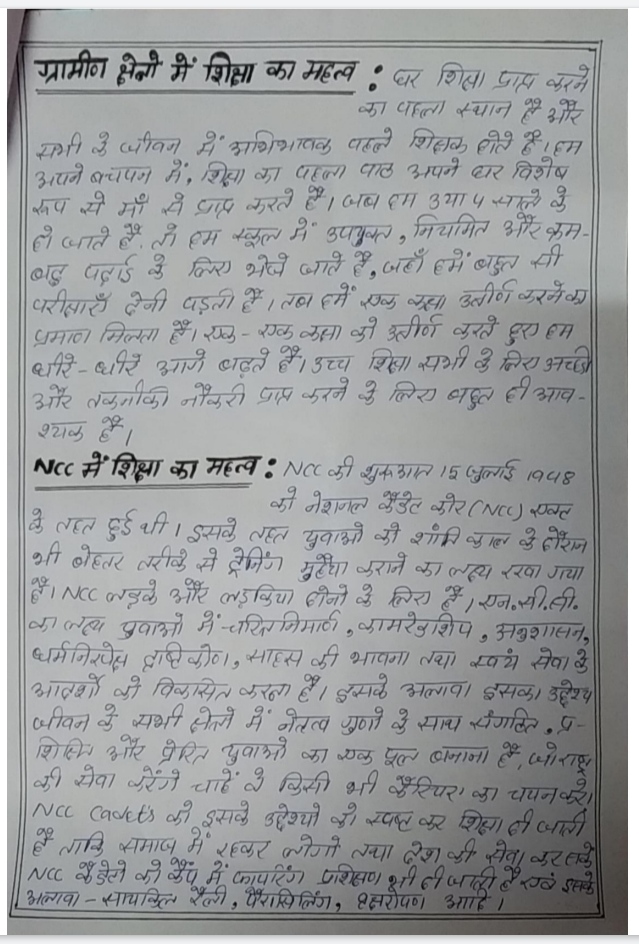 ग्रामीण क्षेत्रो में शिक्षा का महत्व : घर शिक्षा प्राप्त करने
का पहला स्थान है और
सभी के जीवन में अभिभावक पहले शिक्षक होते है। हम
अपने बचपन में, शिक्षा का पहला पाठ अपने घर विशेष
रूप से माँ से प्राप्त करते है। जब हम 3 या 4 साल के
हो जाते है, तो हम स्कूल में उपयुक्त, नियमित और क्रम-
बद्ध पढ़ाई के लिए भेजे जाते है, जहाँ हमें बहुत सी
परीक्षाएँ देनी पड़ती है। तब हमें एक कक्षा उत्तीर्ण करने का
प्रमाण मिलता है। एक-एक कक्षा को उत्तीर्ण करते हुए हम
धीरे-धीरे आगे बढ़ते है। उच्च शिक्षा सभी के लिए अच्छी
और तकनीकी नौकरी प्राप्त करने के लिए बहुत ही आव-
श्यक है।
NCC में शिक्षा का महत्व : NCC की शुरूआत 15 जुलाई 1948
को नेशनल कैडेट कोर (NCC) एक्ट
के तहत हुई थी। इसके तहत युवाओ को शांति काल के दौरान
भी बेहतर तरीके से ट्रेनिंग मुहैया कराने का लक्ष्य रखा गया
है। NCC लड़के और लड़किया दोनो के लिए है। एन.सी.सी.
का लक्ष्य युवाओ में चरित्र निर्माण, कामरेडशिप, अनुशासन,
धर्मनिरपेक्ष दृष्टिकोण, साहस की भावना तथा स्वयं सेवा के
आदर्शो को विकसित करना है। इसके अलावा इसका उद्देश्य
जीवन के सभी क्षेत्रो में नेतृत्व गुणो के साथ संगठित, प्र-
शिक्षित और प्रेरित युवाओ का एक पूल बनाना है, जो राष्ट्र
की सेवा करेंगे चाहें वे किसी भी कैरियर का चयन करे।
NCC Cadets को इसके उद्देश्यो को स्पष्ट कर शिक्षा दी जाती
है ताकि समाज में रहकर लोगो तथा देश की सेवा कर सके
NCC कैडेटो को कैंप में फायरिंग प्रशिक्षण भी दी जाती है एवं इसके
अलावा - सायकिल रैली, पैरासेलिंग, वृक्षारोपण आदि।